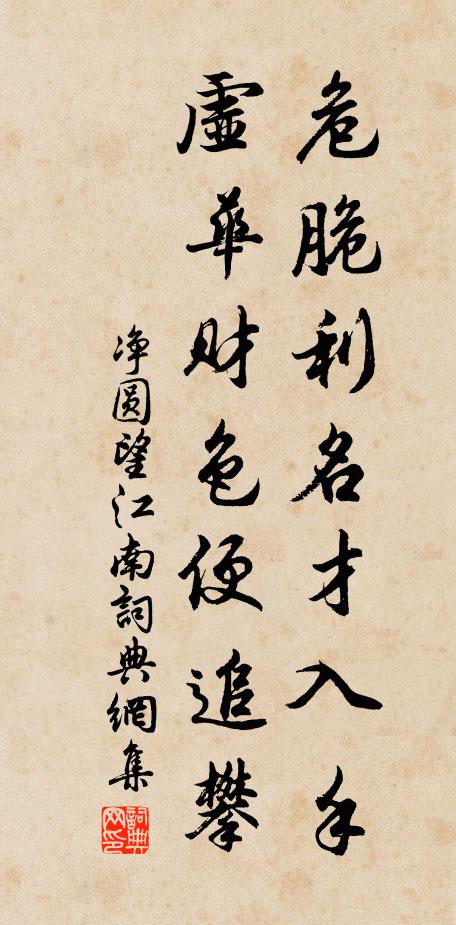 危脆利名才入手
虛華财色便追攀
净圓望江南詞典網集
詞典网印